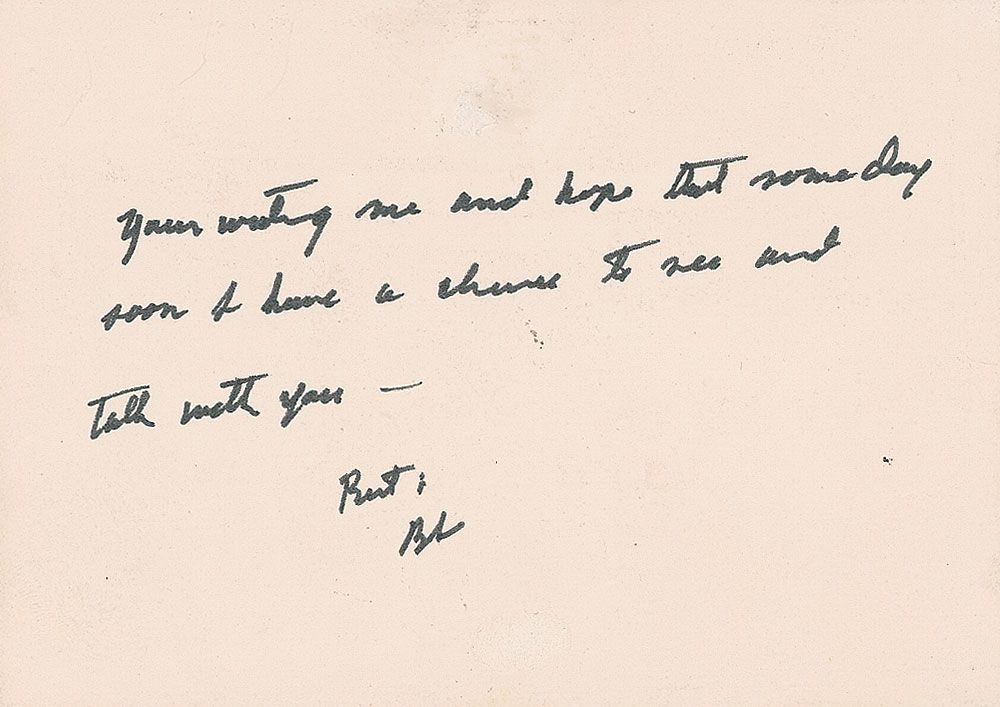 your writing me and hope that some day
soon I have a chance to see and
talk with you —
Best;